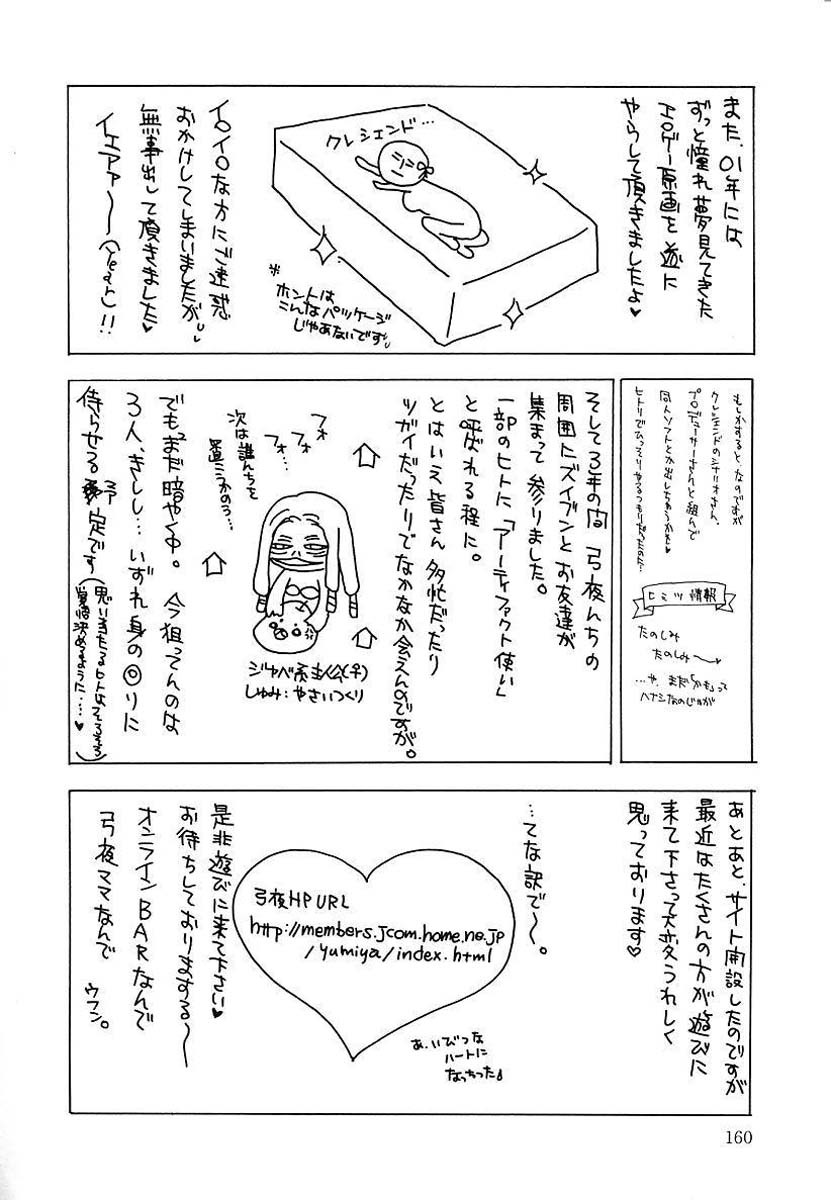 また、01年には
ずっと憧れ夢見てきた
エロゲー原画を遂に
やらして頂きましたよ♥
クレシェンド…
※
ホントは
こんなパッケージ
じゃあないです。
イロイロな方にご迷惑
おかけしてしまいましたが、
無事出して頂きました♥
イエアァ〜〜(Yeah)!!
もしかすると、なのですが
クレシェンドのシナリオさん、
プロデューサーさんと組んで
同人ソフトとか出しちゃうかも♥
ヒトリでひっそりやるつもりだったのに…
ヒミツ情報
たのしみ
たのしみ〜
…や、まだ「かも」って
ハナシなのじゃが
そして3年の間 弓夜んちの
周囲にズイブンとお友達が
集まって参りました。
一部のヒトに「アーティファクト使い」
と呼ばれる程に。
とはいえ皆さん多忙だったり
ツガイだったりでなかなか会えんのですが。
フォ
フォ…
フォ…
次は誰んちを
置こうかのう…
ジャベ系主人公(♀)
しゅみ:やさいつくり
でもまだ暗やく中。今狙ってんのは
3人、きしし…いずれ身の回りに
侍らせる予定です
(思い当たるヒトはそろそろ
覚悟決めるように…♥)
あとあと、サイト開設したのですが
最近はたくさんの方が遊びに
来て下さって大変うれしく
思っております♥
…てな訳で〜。
弓夜HP URL
http://members.jcom.home.ne.jp
/yumiya/index.html
あ、いびつな
ハートに
なっちった♪
是非遊びに来て下さい♥
お待ちしておりまするー
オンラインBARなんで
弓夜ママなんで
ウフン。
160